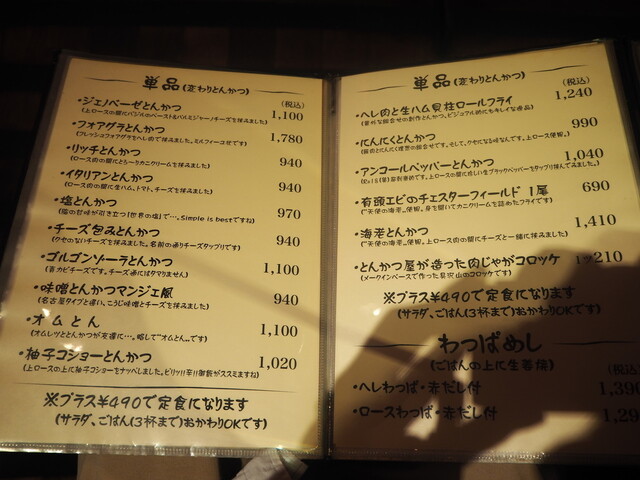 単品(変わりとんかつ)
(税込)
・ジェノベーゼとんかつ 1,100
・フォアグラとんかつ 1,780
(フレッシュフォアグラをヘレ肉で挟みました。ミルフィーユ仕立てです)
・リッチとんかつ 940
(ロース肉の間にとろ〜りカニクリームを挟みました)
・イタリアンとんかつ 940
(ロース肉の間に生ハム、トマト、チーズを挟みました)
・塩とんかつ 970
(脂の甘味が引き立つ!世界の塩で…。Simple is bestですね)
・チーズ包みとんかつ 940
(クセのないチーズを挟みました。名前の通りチーズタップリです)
・ゴルゴンゾーラとんかつ 1,100
(青カビチーズです。チーズ通にはタマリません)
・味噌とんかつマンジェ風 940
(名古屋タイプと違い、こうじ味噌とチーズを挟みました)
・オムとん 1,100
(オムレツととんかつが友達に…。略して“オムとん”です)
・柚子コショーとんかつ 1,020
(上ロースの上に柚子コショーをナッペしました。ピリッ!!辛!!御飯がススミますね)
※プラス¥490で定食になります
(サラダ、ごはん(3杯まで)おかわりOKです)
単品(変わりとんかつ)
(税込)
・ヘレ肉と生ハム貝柱ロールフライ 1,240
・にんにくとんかつ 990
・アンコールペッパーとんかつ 1,040
・有頭エビのチェスターフィールド 1尾 690
("天使の海老"使用。身を開いてカニクリームを詰めたフライです)
・海老とんかつ 1,410
("天使の海老"使用。上ロース肉の間にチーズと一緒に挟みました)
・とんかつ屋が造った肉じゃがコロッケ 1ヶ210
(メークインベースで作った具沢山のコロッケです)
※プラス¥490で定食になります
(サラダ、ごはん(3杯まで)おかわりOKです)
わっぱめし
(ごはんの上に生姜焼)
(税込
・ヘレわっぱ・赤だし付 1,39
・ロースわっぱ・赤だし付 1,29